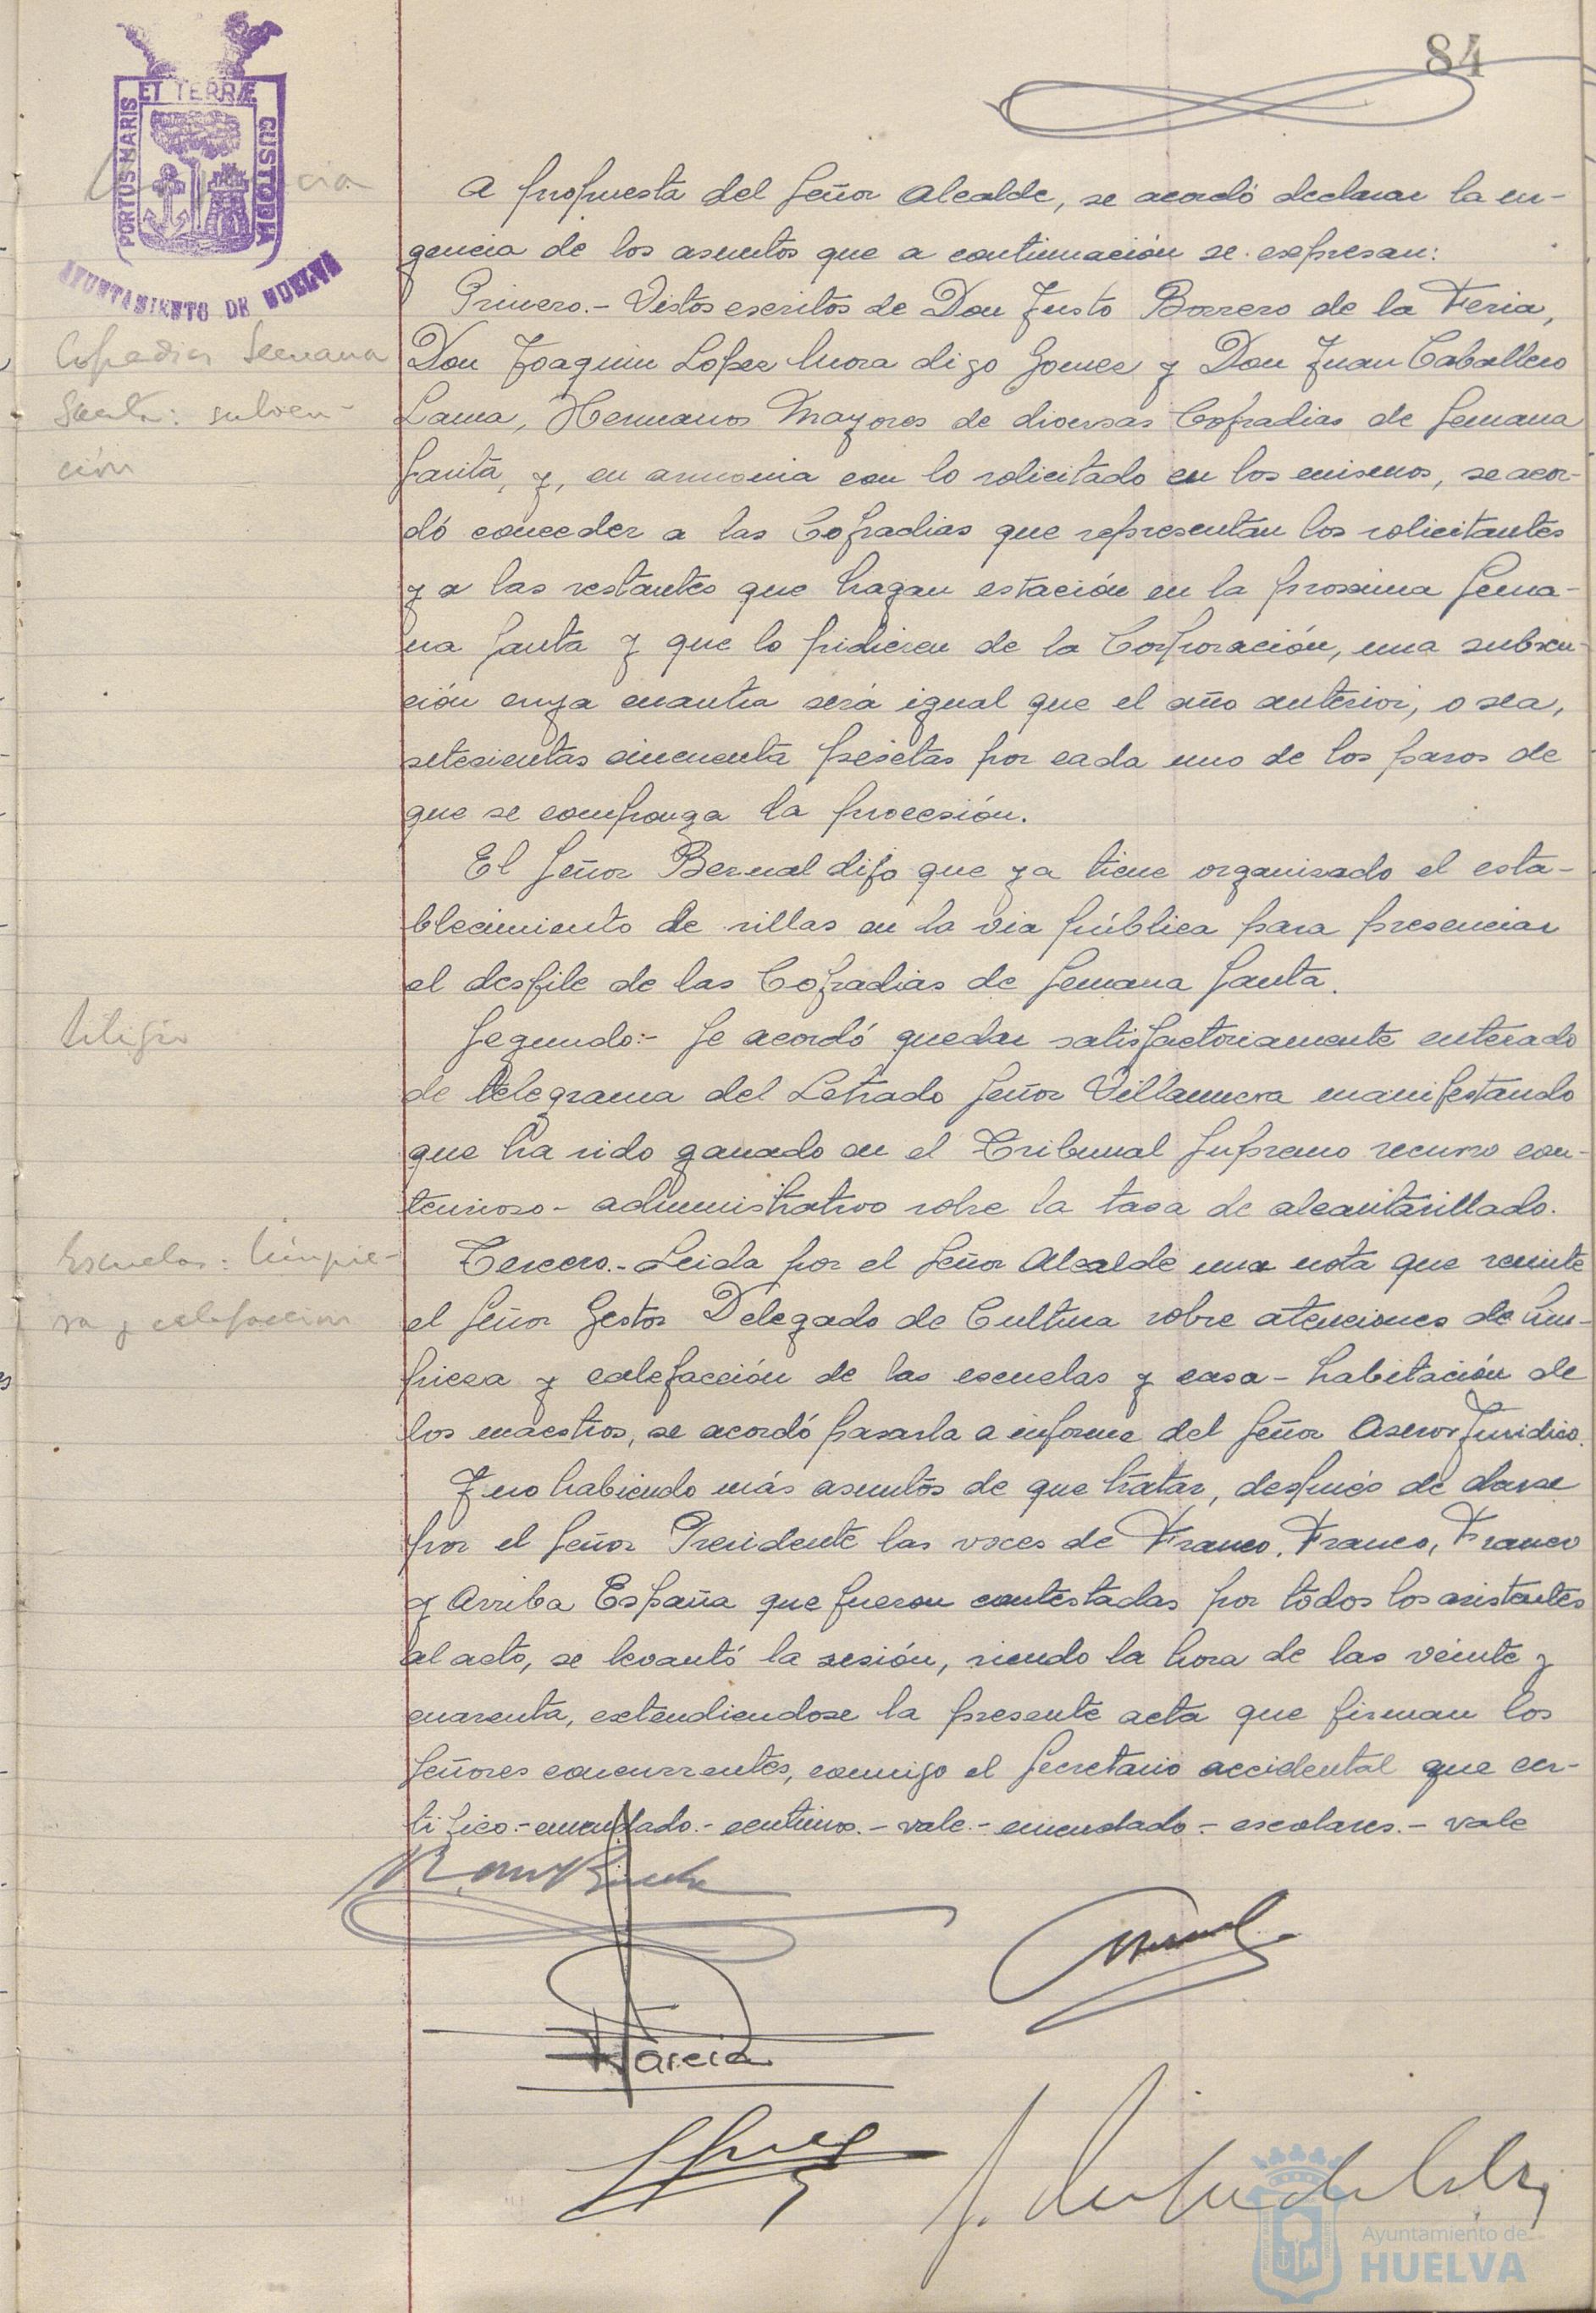 84
ET TERRÆ
PORTUS MARIS
CUSTODIA
AYUNTAMIENTO DE HUELVA
A propuesta del Señor Alcalde, se acordó declarar la ur-
gencia de los asuntos que a continuación se expresan:
Cofradías Semana
Santa: subven-
ción
Primero.- Vistos escritos de Don Justo Borrero de la Feria,
Don Joaquin Lopez Mora digo Gomez y Don Juan Caballero
Lama, Hermanos Mayores de diversas Cofradias de Semana
Santa, y, en armonia con lo solicitado en los mismos, se acor-
dó conceder a las Cofradias que representan los solicitantes
y a las restantes que hagan estación en la proxima Sema-
na Santa y que lo pidieren de la Corporación, una subven-
ción cuya cuantia será igual que el año anterior, o sea,
setecientas cincuenta pesetas por cada uno de los pasos de
que se componga la procesión.
El Señor Bernal dijo que ya tiene organizado el esta-
blecimiento de sillas en la via pública para presenciar
el desfile de las Cofradias de Semana Santa.
Litigio
Segundo:- Se acordó quedar satisfactoriamente enterado
de telegrama del Letrado Señor Villanueva manifestando
que ha sido ganado en el Tribunal Supremo recurso con-
tencioso-administrativo sobre la tasa de alcantarillado.
Escuelas: limpie-
za y calefaccion
Tercero.- Leida por el Señor Alcalde una nota que remite
el Señor Gestor Delegado de Cultura sobre atenciones de lim-
pieza y calefacción de las escuelas y casa-habitación de
los maestros, se acordó pasarla a informe del Señor Asesor Juridico.
Y no habiendo más asuntos de que tratar, después de darse
por el Señor Presidente las voces de Franco, Franco, Franco
y Arriba España que fueron contestadas por todos los asistentes
al acto, se levantó la sesión, siendo la hora de las veinte y
cuarenta, extendiendose la presente acta que firman los
Señores concurrentes, conmigo el Secretario accidental que cer-
tifico.- enmendado.- centimos.- vale.- enmendado- escolares.- vale
Garcia
Ayuntamiento de
HUELVA